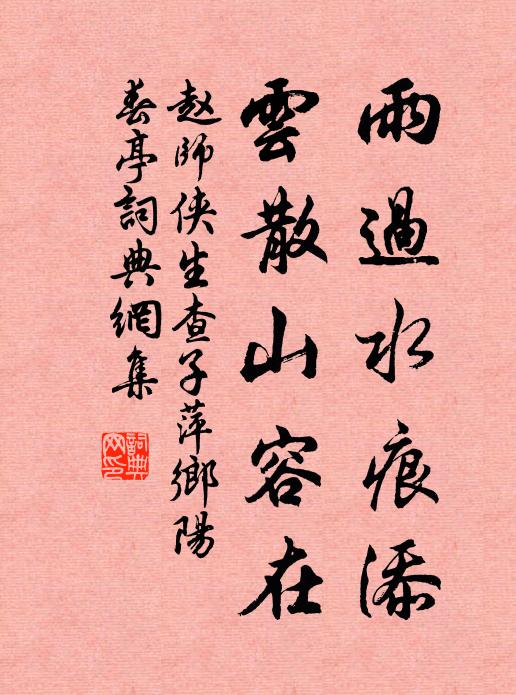 雨過水痕添
雲散山容在
赵師侠生查子萍鄉陽
春亭詞典網集
詞典网印